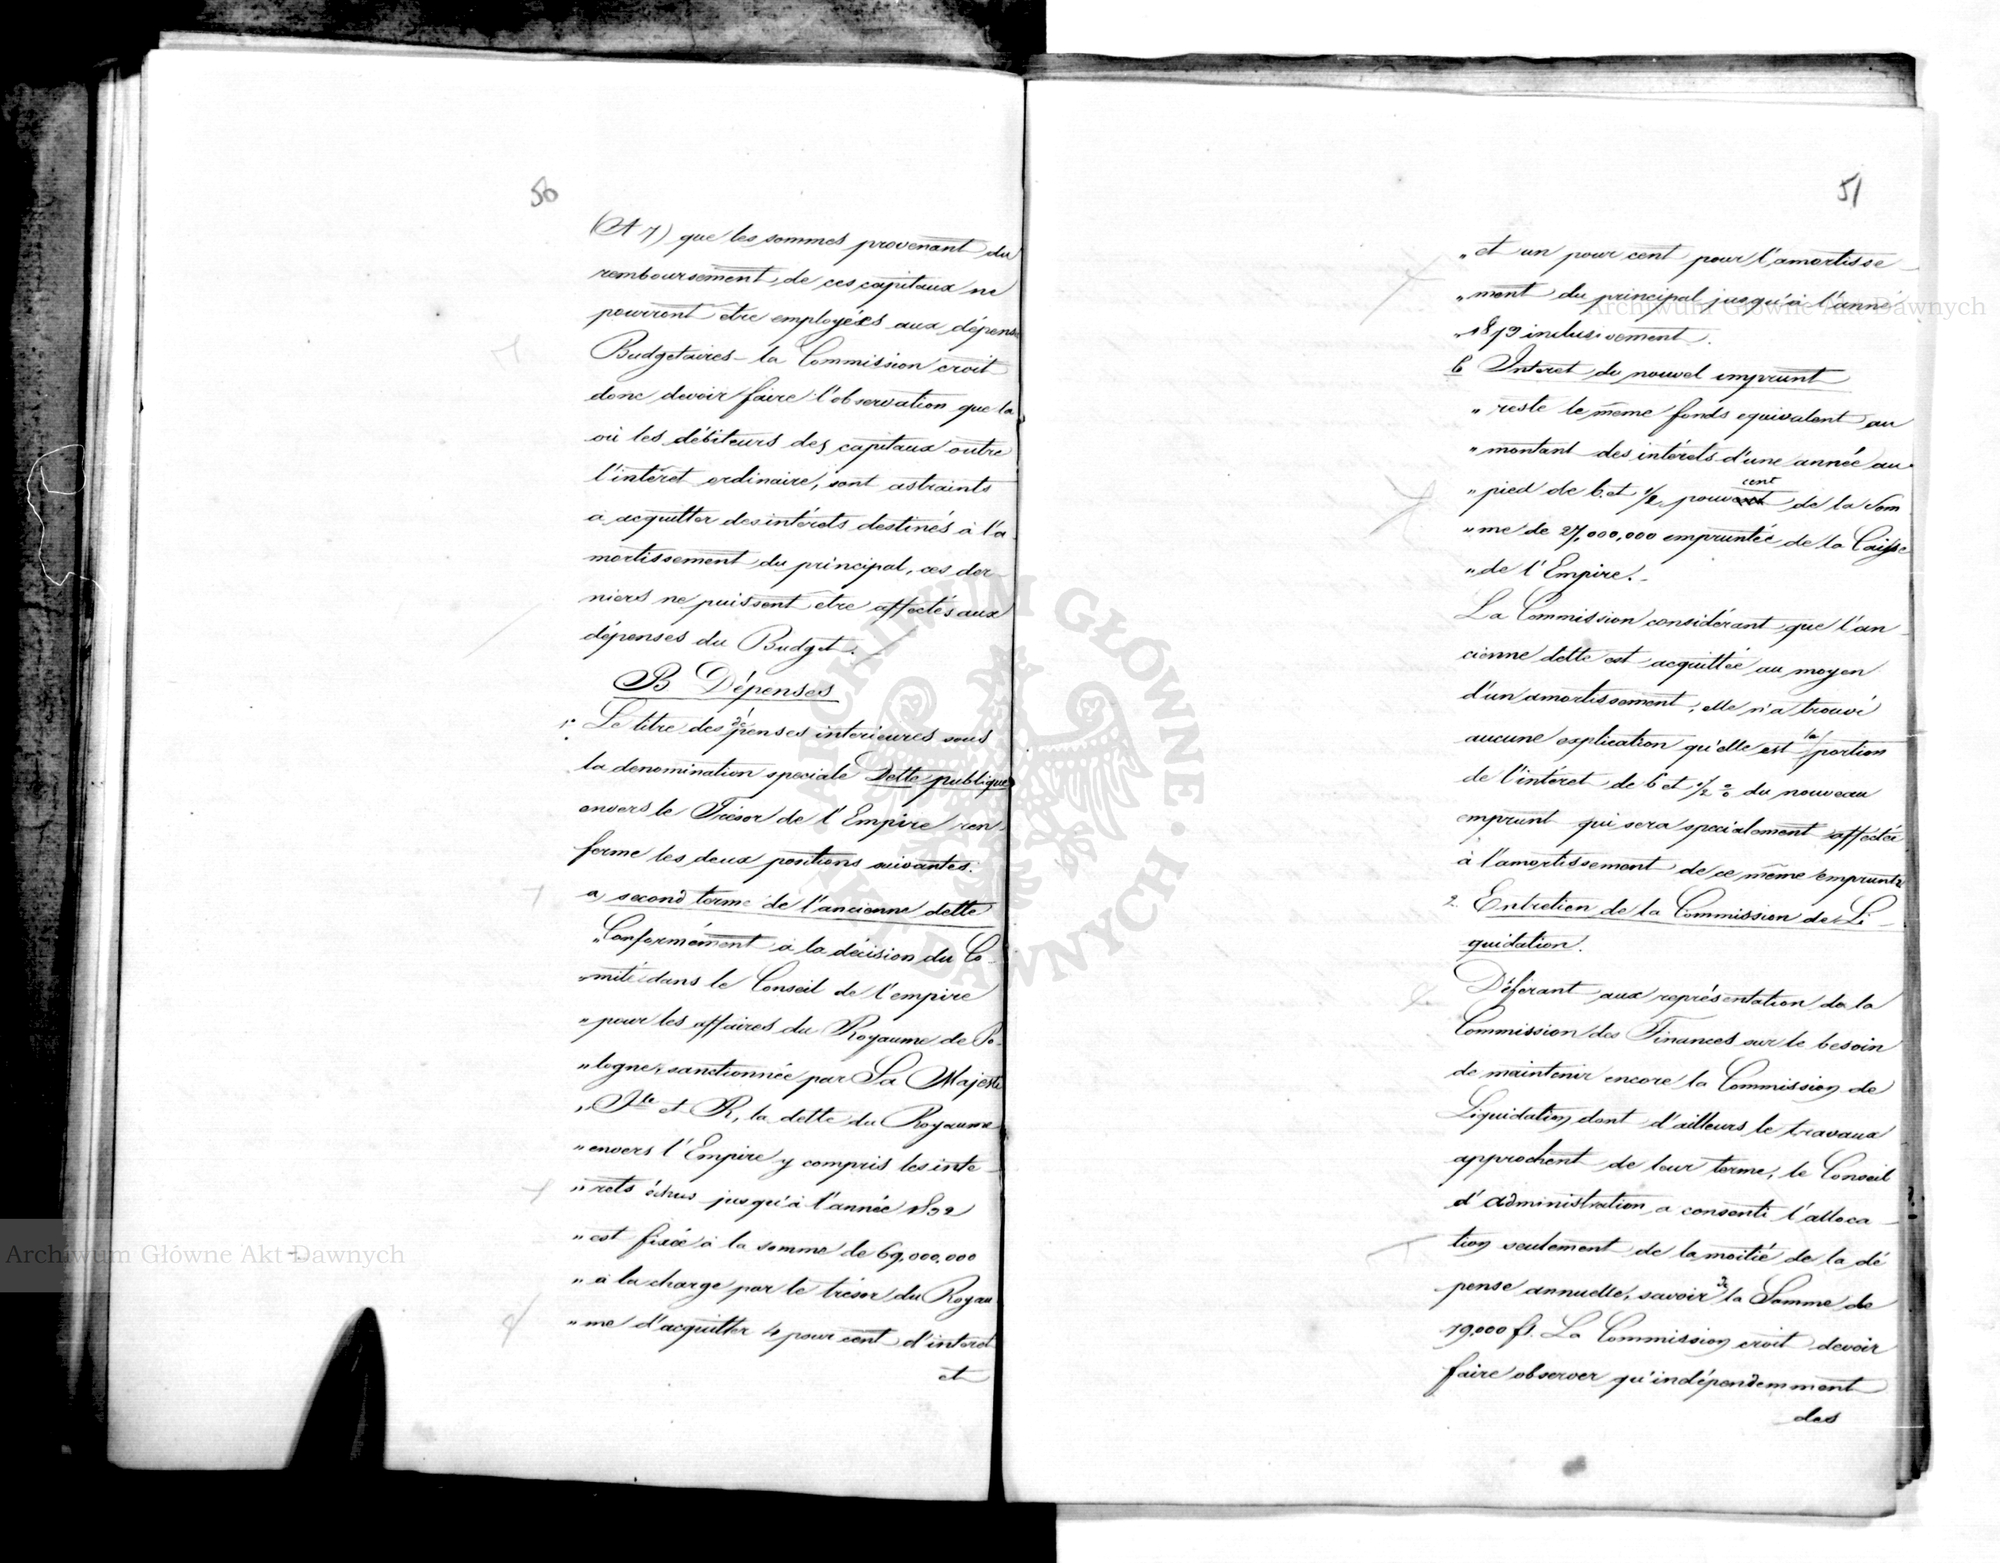 50
(A 7) que les sommes provenant du
remboursement de ces capitaux ne
pourront etre employés aux dépenses
Budgetaires – la Commission croit
donc devoir faire l'observation que la
où les débiteurs des capitaux outre
l'intéret ordinaire, sont astraints
a acquitter des intérets destinés à l'a
mortissement du principal, ces der-
niers ne puissent etre affectés aux
dépenses du Budget. –
B Dépenses
1° Le titre des dépenses interieures sous
la denomination speciale Dette publique
envers le Trésor de l'Empire ren-
ferme les deux positions suivantes.
a, second terme de l'ancienne dette
„Conformément à la décision du Co-
„mité dans le Conseil de l'empire
„pour les affaires du Royaume de Po-
„logne, sanctionnée par Sa Majesté
„Ile et R, la dette du Royaume
„envers l'Empire y compris les inte-
„rets échus jusqu'à l'année 1832
„est fixée à la somme de 69,000,000
„à la charge par le trésor du Royau
„me d'acquitter 4 pour cent d'interet
et
51
„et un pour cent pour l'amortisse-
„ment du principal jusqu'à l'année
„1879 inclusivement.
b Interet du nouvel emprunt
„reste le même fonds equivalent au
„montant des intérets d'une année au
„pied de 6 et 1/2 pour cent de la som
„me de 27,000,000 empruntée de la Caisse
„de l'Empire. –
La Commission considérant que l'an-
cienne dette est acquittée au moyen
d'un amortissement, elle n'a trouvé
aucune explication qu'elle est la portion
de l'intéret de 6 et 1/2 % du nouveau
emprunt qui sera specialement affectée
à l'amortissement de ce même emprunt
2. Entretien de la Commission de Li-
quidation.
Déférant aux représentation de la
Commission des Finances sur le besoin
de maintenir encore la Commission de
Liquidation dont d'ailleurs le travaux
approchent de leur terme, le Conseil
d'administration a consenti l'alloca-
tion seulement de la moitié de la dé
pense annuelle, savoir de la Somme de
19,000 fl. La Commission croit devoir
faire observer qu'indépendemment
des
Archiwum Główne Akt Dawnych
Archiwum Główne Akt Dawnych
ARCHIWUM GŁÓWNE AKT DAWNYCH